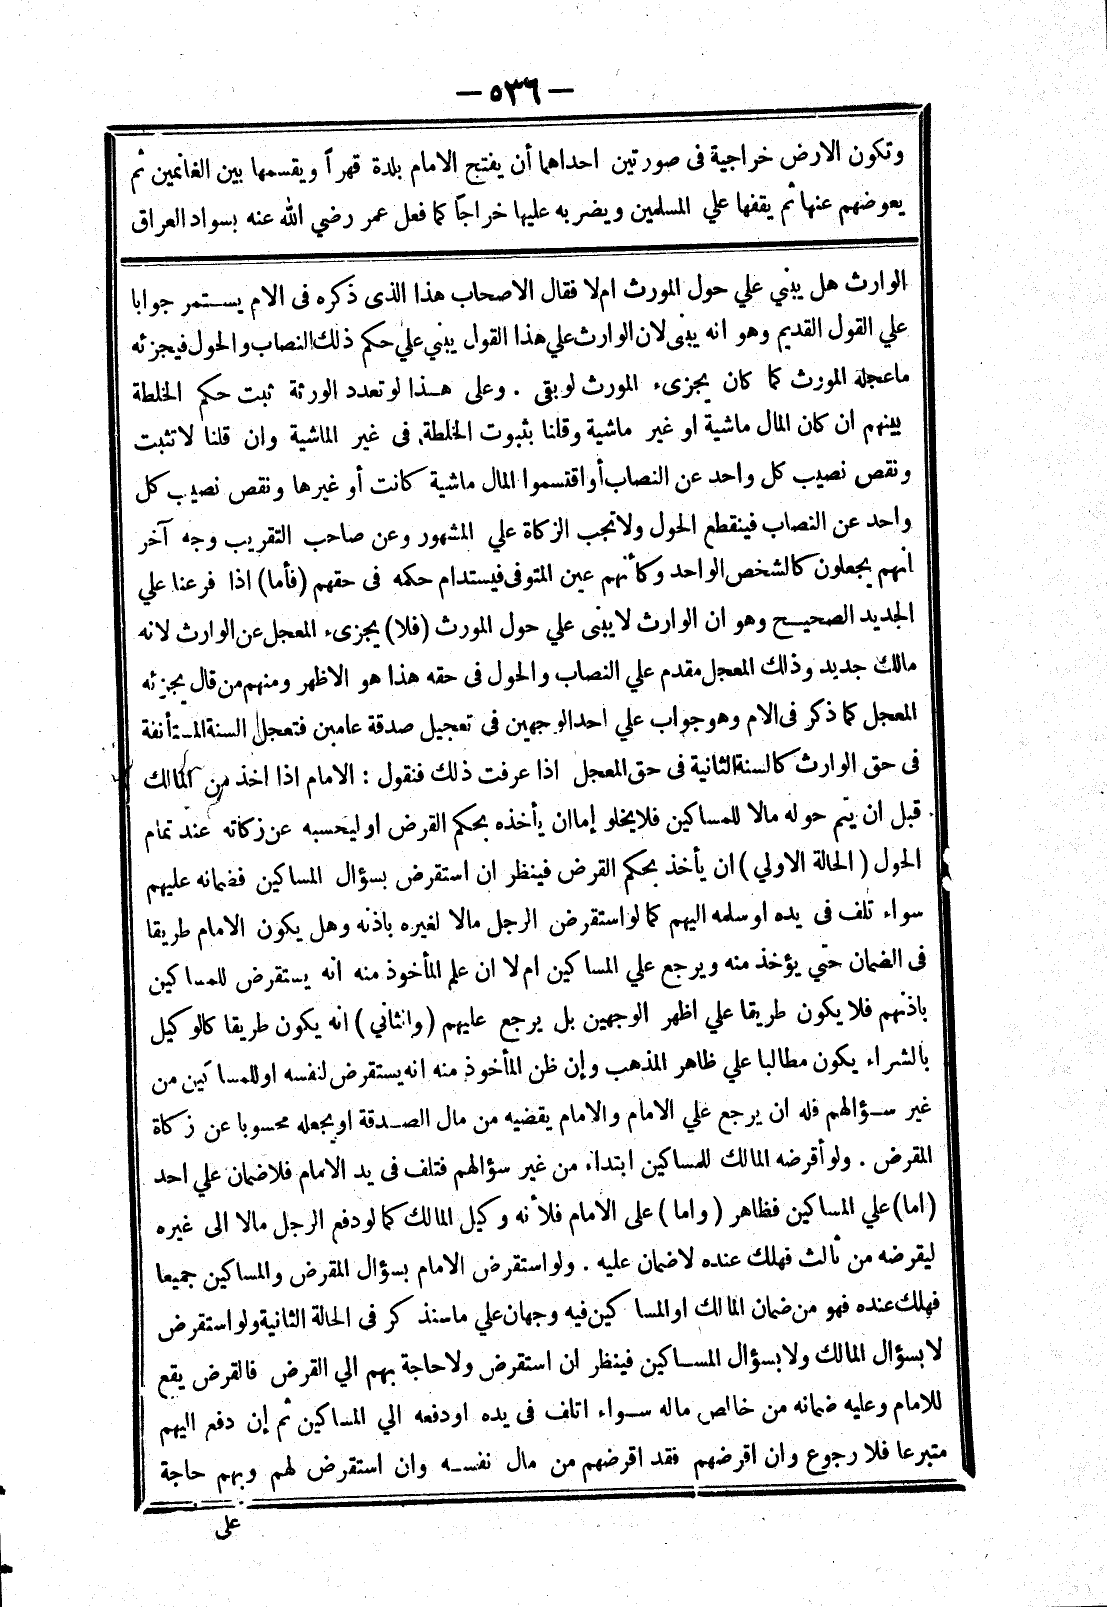 — ٥٣٦ —
وتكون الارض خراجية فى صورتين احداهما أن يفتح الامام بلدة قهراً ويقسمها بين الغانمين ثم
يعوضهم عنها ثم يقفها علي المسلمين ويضربه عليها خراجاً كما فعل عمر رضي الله عنه بسواد العراق
الوارث هل يبني علي حول المورث ام لا فقال الاصحاب هذا الذى ذكره فى الام يستمر جوابا
علي القول القديم وهو انه يبنى لان الوارث علي هذا القول يبني علي حكم ذلك النصاب والحول فيجزئه
ما عجله المورث كما كان يجزىء المورث لو بقى . وعلى هذا لو تعدد الورثة ثبت حكم الخلطة
بينهم ان كان المال ماشية او غير ماشية وقلنا بثبوت الخلطة فى غير الماشية وان قلنا لا تثبت
ونقص نصيب كل واحد عن النصاب أو اقتسموا المال ماشية كانت أو غيرها ونقص نصيب كل
واحد عن النصاب فينقطع الحول ولا تجب الزكاة علي المشهور وعن صاحب التقريب وجه آخر
انهم يجعلون كالشخص الواحد وكأنهم عين المتوفى فيستدام حكمه فى حقهم (فأما) اذا فرعنا علي
الجديد الصحيح وهو ان الوارث لا يبنى علي حول المورث (فلا) يجزىء المعجل عن الوارث لانه
مالك جديد وذلك المعجل مقدم علي النصاب والحول فى حقه هذا هو الاظهر ومنهم من قال يجزئه
المعجل كما ذكر فى الام وهو جواب علي احد الوجهين فى تعجيل صدقة عامين فتعجل السنة المستأنفة
فى حق الوارث كالسنة الثانية فى حق المعجل اذا عرفت ذلك فنقول : الامام اذا اخذ من المالك
قبل ان يتم حوله مالا للمساكين فلا يخلو إما ان يأخذه بحكم القرض او ليحسبه عن زكاته عند تمام
الحول ( الحالة الاولي ) ان يأخذ بحكم القرض فينظر ان استقرض بسؤال المساكين فضمانه عليهم
سواء تلف فى يده او سلمه اليهم كما لو استقرض الرجل مالا لغيره باذنه وهل يكون الامام طريقا
فى الضمان حتي يؤخذ منه ويرجع علي المساكين ام لا ان علم المأخوذ منه انه يستقرض للمساكين
باذنهم فلا يكون طريقا علي اظهر الوجهين بل يرجع عليهم ( والثاني ) انه يكون طريقا كالوكيل
بالشراء يكون مطالبا علي ظاهر المذهب وإن ظن المأخوذ منه انه يستقرض لنفسه او للمساكين من
غير سؤالهم فله ان يرجع علي الامام والامام يقضيه من مال الصدقة او يجعله محسوبا عن زكاة
المقرض . ولو أقرضه المالك للمساكين ابتداء من غير سؤالهم فتلف فى يد الامام فلا ضمان علي احد
(اما) علي المساكين فظاهر ( واما ) على الامام فلأنه وكيل المالك كما لو دفع الرجل مالا الى غيره
ليقرضه من ثالث فهلك عنده لا ضمان عليه . ولو استقرض الامام بسؤال المقرض والمساكين جميعا
فهلك عنده فهو من ضمان المالك او المساكين فيه وجهان علي ما سنذكر فى الحالة الثانية ولو استقرض
لا بسؤال المالك ولا بسؤال المساكين فينظر ان استقرض ولا حاجة بهم الي القرض فالقرض يقع
للامام وعليه ضمانه من خالص ماله سواء اتلف فى يده او دفعه الي المساكين ثم إن دفع اليهم
متبرعا فلا رجوع وان اقرضهم فقد اقرضهم من مال نفسه وان استقرض لهم وبهم حاجة
على